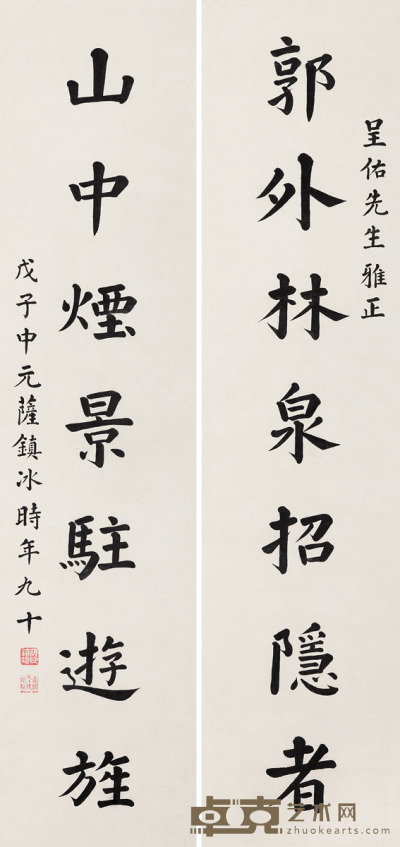 呈佑先生雅正
郭外林泉招隱者
山中煙景駐遊旌
戊子中元薩鎮冰時年九十
卓克艺术网
zhuokearts.com